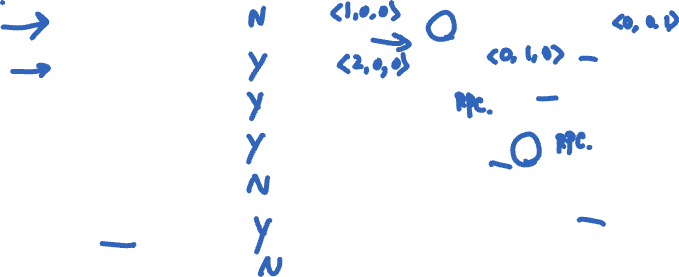 N <1,0,0> <0,0,1>
Y <2,0,0> <0,1,0>
Y RPC.
Y RPC.
N
Y
N